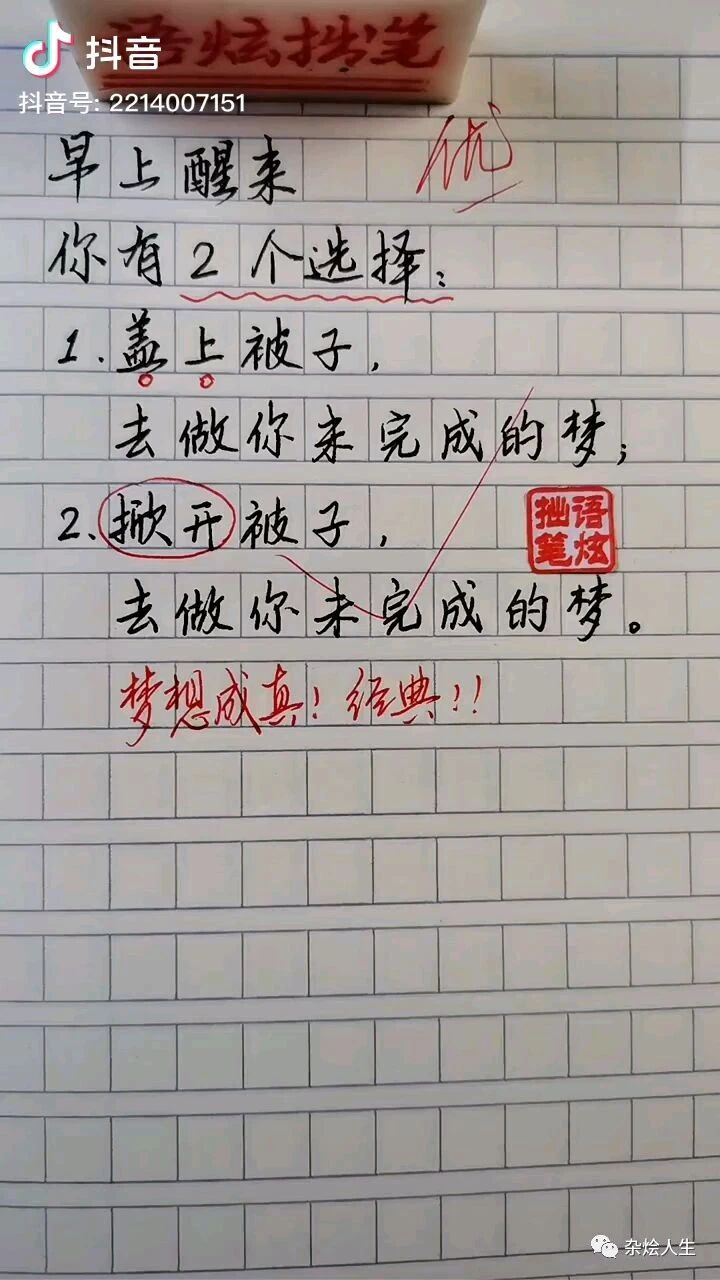 语炫拙笔
抖音
抖音号: 2214007151
优
早上醒来
你有2个选择:
1.盖上被子,
去做你未完成的梦;
2.掀开被子,
去做你未完成的梦。
语炫
拙笔
梦想成真!经典!!
杂烩人生